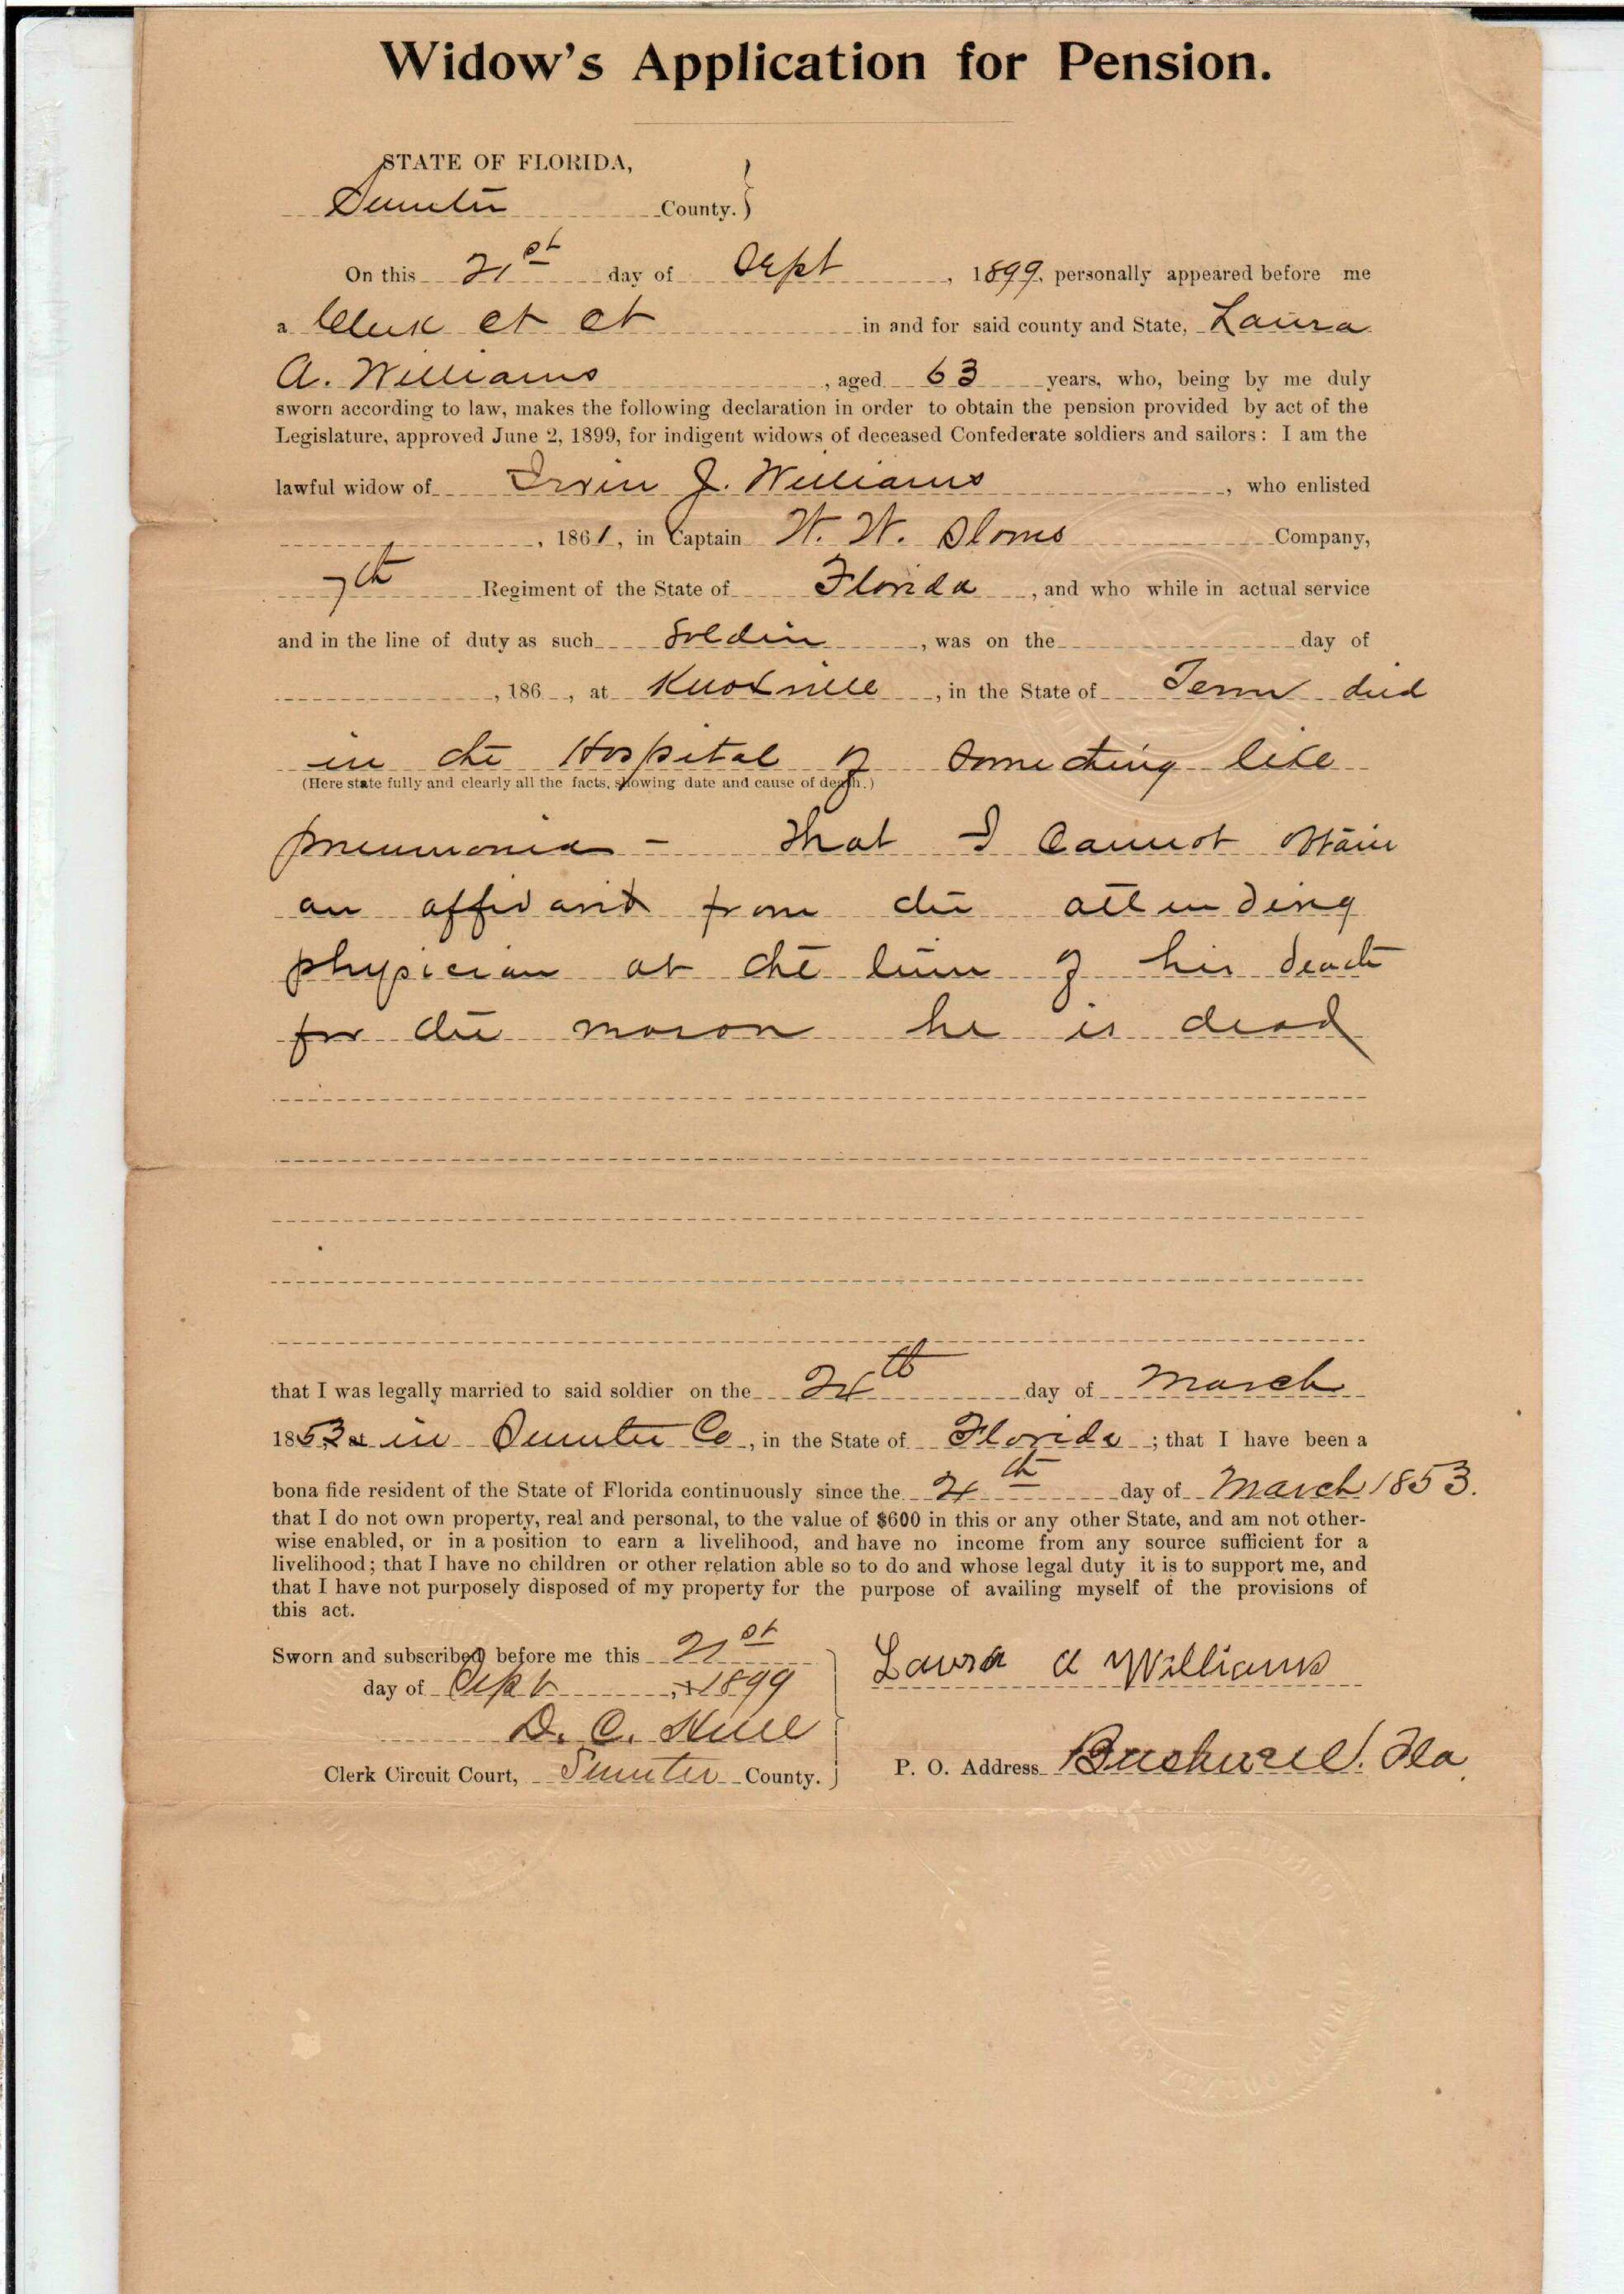 Widow's Application for Pension.
STATE OF FLORIDA,
Sumter County.
On this 21st day of Sept, 1899, personally appeared before me
a Clerk Ct Ct in and for said county and State, Laura
A. Williams, aged 63 years, who, being by me duly
sworn according to law, makes the following declaration in order to obtain the pension provided by act of the
Legislature, approved June 2, 1899, for indigent widows of deceased Confederate soldiers and sailors: I am the
lawful widow of Irvin J. Williams, who enlisted
, 1861, in Captain W. W. Slons Company,
7th Regiment of the State of Florida, and who while in actual service
and in the line of duty as such Soldier, was on the day of
, 186 , at Knoxville, in the State of Tenn died
in the Hospital of something like
(Here state fully and clearly all the facts, showing date and cause of death.)
pneumonia - That I Cannot obtain
an affidavit from the attending
physician at the time of his death
for the reason he is dead
that I was legally married to said soldier on the 24th day of March
1853 in Sumter Co, in the State of Florida; that I have been a
bona fide resident of the State of Florida continuously since the 24th day of March 1853.
that I do not own property, real and personal, to the value of $600 in this or any other State, and am not other-
wise enabled, or in a position to earn a livelihood, and have no income from any source sufficient for a
livelihood; that I have no children or other relation able so to do and whose legal duty it is to support me, and
that I have not purposely disposed of my property for the purpose of availing myself of the provisions of
this act.
Sworn and subscribed before me this 21st
day of Sept, 1899
Laura A Williams
D. C. Hull
Clerk Circuit Court, Sumter County.
P. O. Address Bushnell. Fla